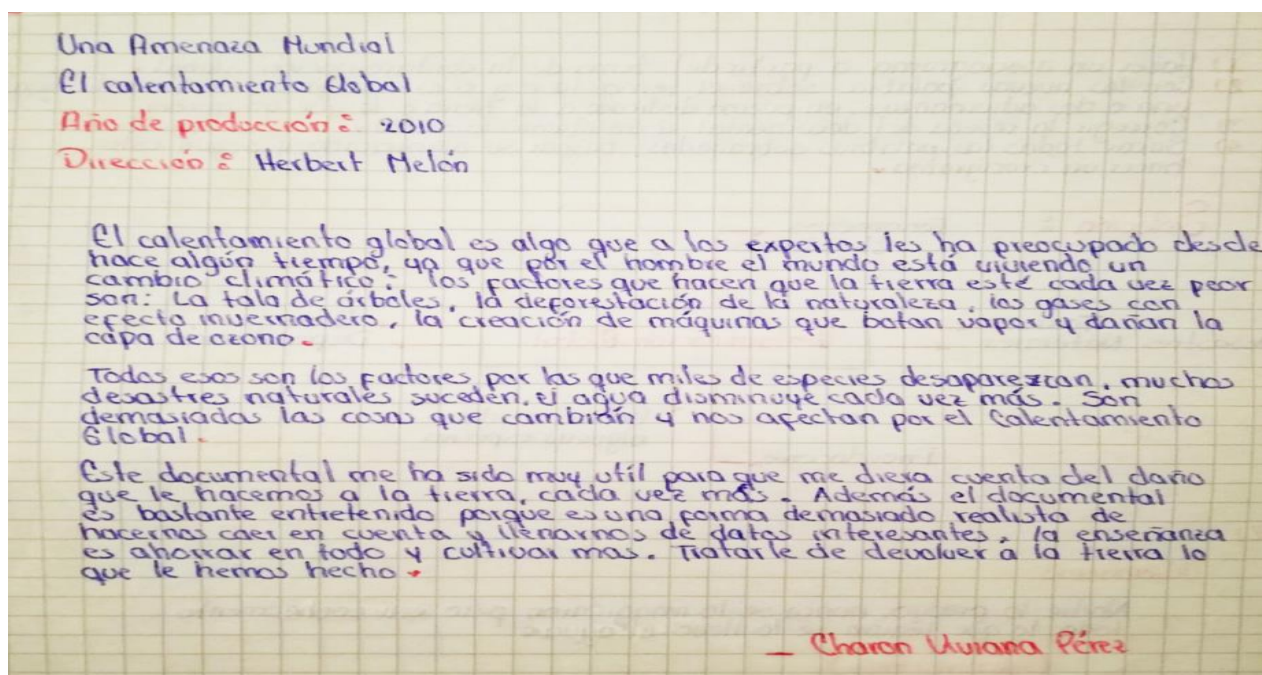 Una Amenaza Mundial
El calentamiento Global
Año de producción: 2010
Dirección: Herbert Melón
El calentamiento global es algo que a los expertos les ha preocupado desde
hace algún tiempo, ya que por el hombre el mundo está viviendo un
cambio climático: los factores que hacen que la tierra esté cada vez peor
son: La tala de árboles, la deforestación de la naturaleza, los gases con
efecto invernadero, la creación de máquinas que botan vapor y dañan la
capa de ozono.
Todos esos son los factores por los que miles de especies desaparezcan, muchos
desastres naturales suceden, el agua disminuye cada vez más. Son
demasiadas las cosas que cambian y nos afectan por el Calentamiento
Global.
Este documental me ha sido muy util para que me diera cuenta del daño
que le hacemos a la tierra, cada vez más. Además el documental
es bastante entretenido porque es una forma demasiado realista de
hacernos caer en cuenta y llenarnos de datos interesantes, la enseñanza
es ahorrar en todo y cultivar mas. Tratarle de devolver a la tierra lo
que le hemos hecho.
_ Charon Viviana Pérez